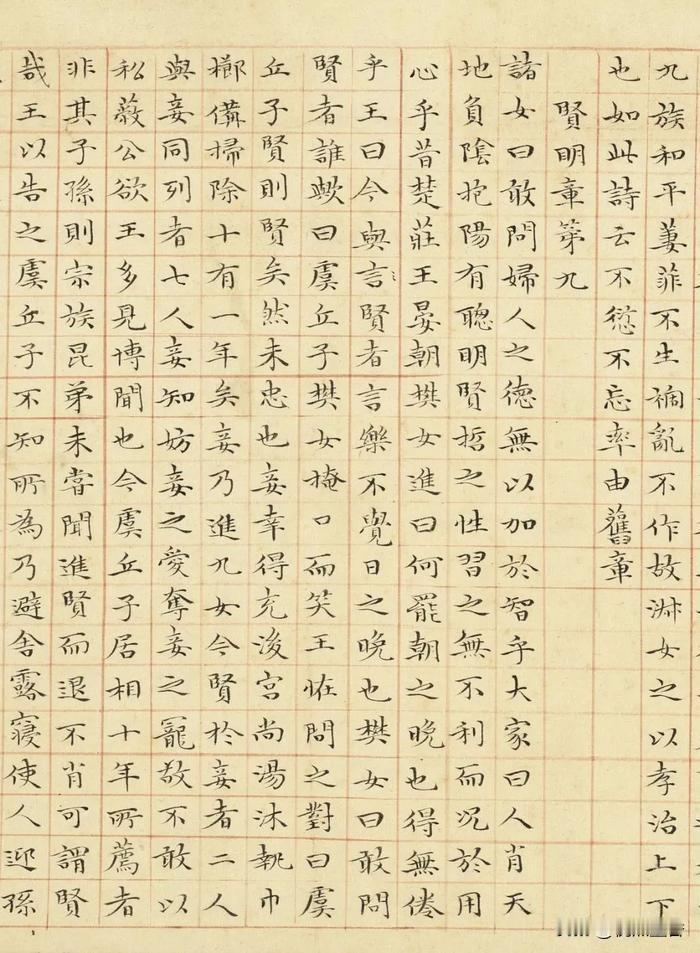 九族和平萋菲不生禍亂不作故淑女之以孝治上下
也如此詩云不愆不忘率由舊章
賢明章第九
諸女曰敢問婦人之德無以加於智乎大家曰人肖天
地負陰抱陽有聰明賢哲之性習之無不利而況於用
心乎昔楚莊王晏朝樊女進曰何罷朝之晚也得無倦
乎王曰今與言賢者言樂不覺日之晚也樊女曰敢問
賢者誰歟曰虞丘子樊女掩口而笑王怪問之對曰虞
丘子賢則賢矣然未忠也妾幸得充後宮尚湯沐執巾
櫛備掃除十有一年矣妾乃進九女今賢於妾者二人
與妾同列者七人妾知妨妾之愛奪妾之寵故不敢以
私蔽公欲王多見博聞也今虞丘子居相十年所薦者
非其子孫則宗族昆弟未嘗聞進賢而退不肖可謂賢
哉王以告之虞丘子不知所為乃避舍露寢使人迎孫